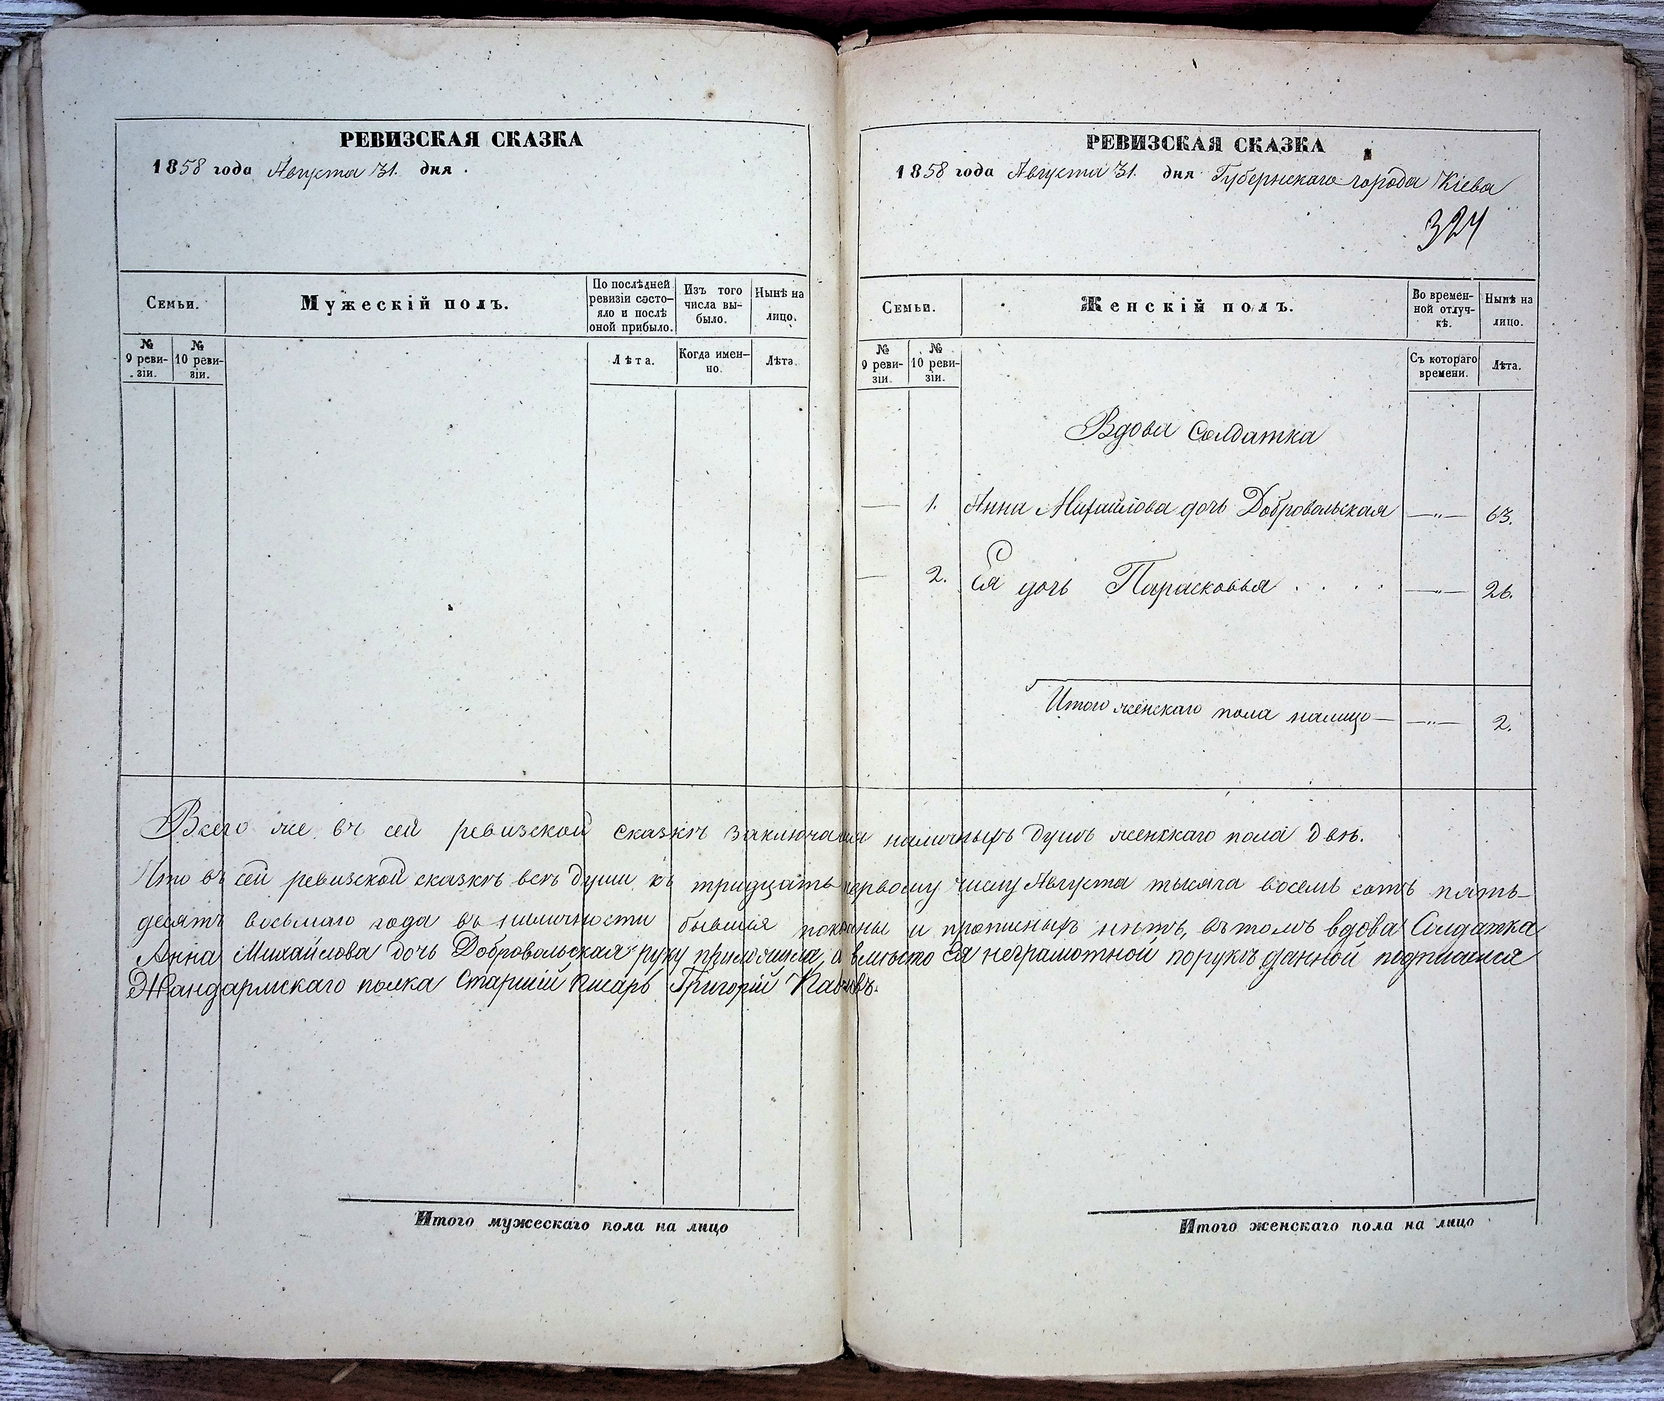 РЕВИЗСКАЯ СКАЗКА
1858 года Августа 31. дня
Семьи.
Мужескій полъ.
По послѣдней ревизіи состояло и послѣ оной прибыло.
Изъ того числа выбыло.
Нынѣ на лицо.
№ 9 ревизіи.
№ 10 ревизіи.
Лѣта.
Когда именно.
Лѣта.
РЕВИЗСКАЯ СКАЗКА
1858 года Августа 31. дня Губернскаго города Кіева
324
Семьи.
Женскій полъ.
Во временной отлучкѣ.
Нынѣ на лицо.
№ 9 ревизіи.
№ 10 ревизіи.
Съ котораго времени.
Лѣта.
Вдова Солдатка
— 1. Анна Михайлова дочь Добровольская —"— 63.
— 2. Ея дочь Парасковья . . . . —"— 26.
Итого женскаго пола налицо — —"— 2.
Всего же въ сей ревизской сказкѣ заключается наличныхъ душъ женскаго пола двѣ.
Что въ сей ревизской сказкѣ всѣ души къ тридцать первому числу Августа тысяча восемь сотъ пять-
десятъ восьмаго года въ наличности бывшія показаны и прописныхъ нѣтъ, въ томъ вдова Солдатка
Анна Михайлова дочь Добровольская руку приложила, а вмѣсто ея неграмотной порукѣ данной подписался
Жандармскаго полка Старшій Писарь Григорій
Итого мужескаго пола на лицо
Итого женскаго пола на лицо